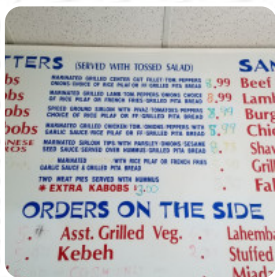 TTERS (SERVED WITH TOSSED SALAD) SAN
bs MARINATED GRILLED CENTER CUT FILLET TOM. PEPPERS .99 Beef
ONIONS CHOICE OF RICE PILAF OR FF GRILLED PITA BREAD
obs MARINATED GRILLED LAMB TOM. PEPPERS ONIONS CHOICE .99 Lamb
OF RICE PILAF OR FRENCH FRIES GRILLED PITA BREAD
obs SPICED GROUND SIRLOIN WITH PILAF TOMATOES PEPPERS Burg
CHOICE OF RICE PILAF OR FF GRILLED PITA BREAD
bobs MARINATED GRILLED CHICKEN TOM. ONIONS PEPPERS WITH Chi
GARLIC SAUCE RICE PILAF OR FF GRILLED PITA BREAD
ANESE MARINATED SIRLOIN TIPS WITH PARSLEY ONIONS SESAME Sha
SEED SAUCE SERVED OVER HUMMUS GRILLED PITA BREAD
MARINATED WITH RICE PILAF OR FRENCH FRIES Gril
GARLIC SAUCE & GRILLED PITA BREAD
TWO MEAT PIES SERVED WITH HUMMUS Fa
* EXTRA KABOBS 3.00
ORDERS ON THE SIDE
. Asst. Grilled Veg. . Lahemb
. Kebeh . Stuffed